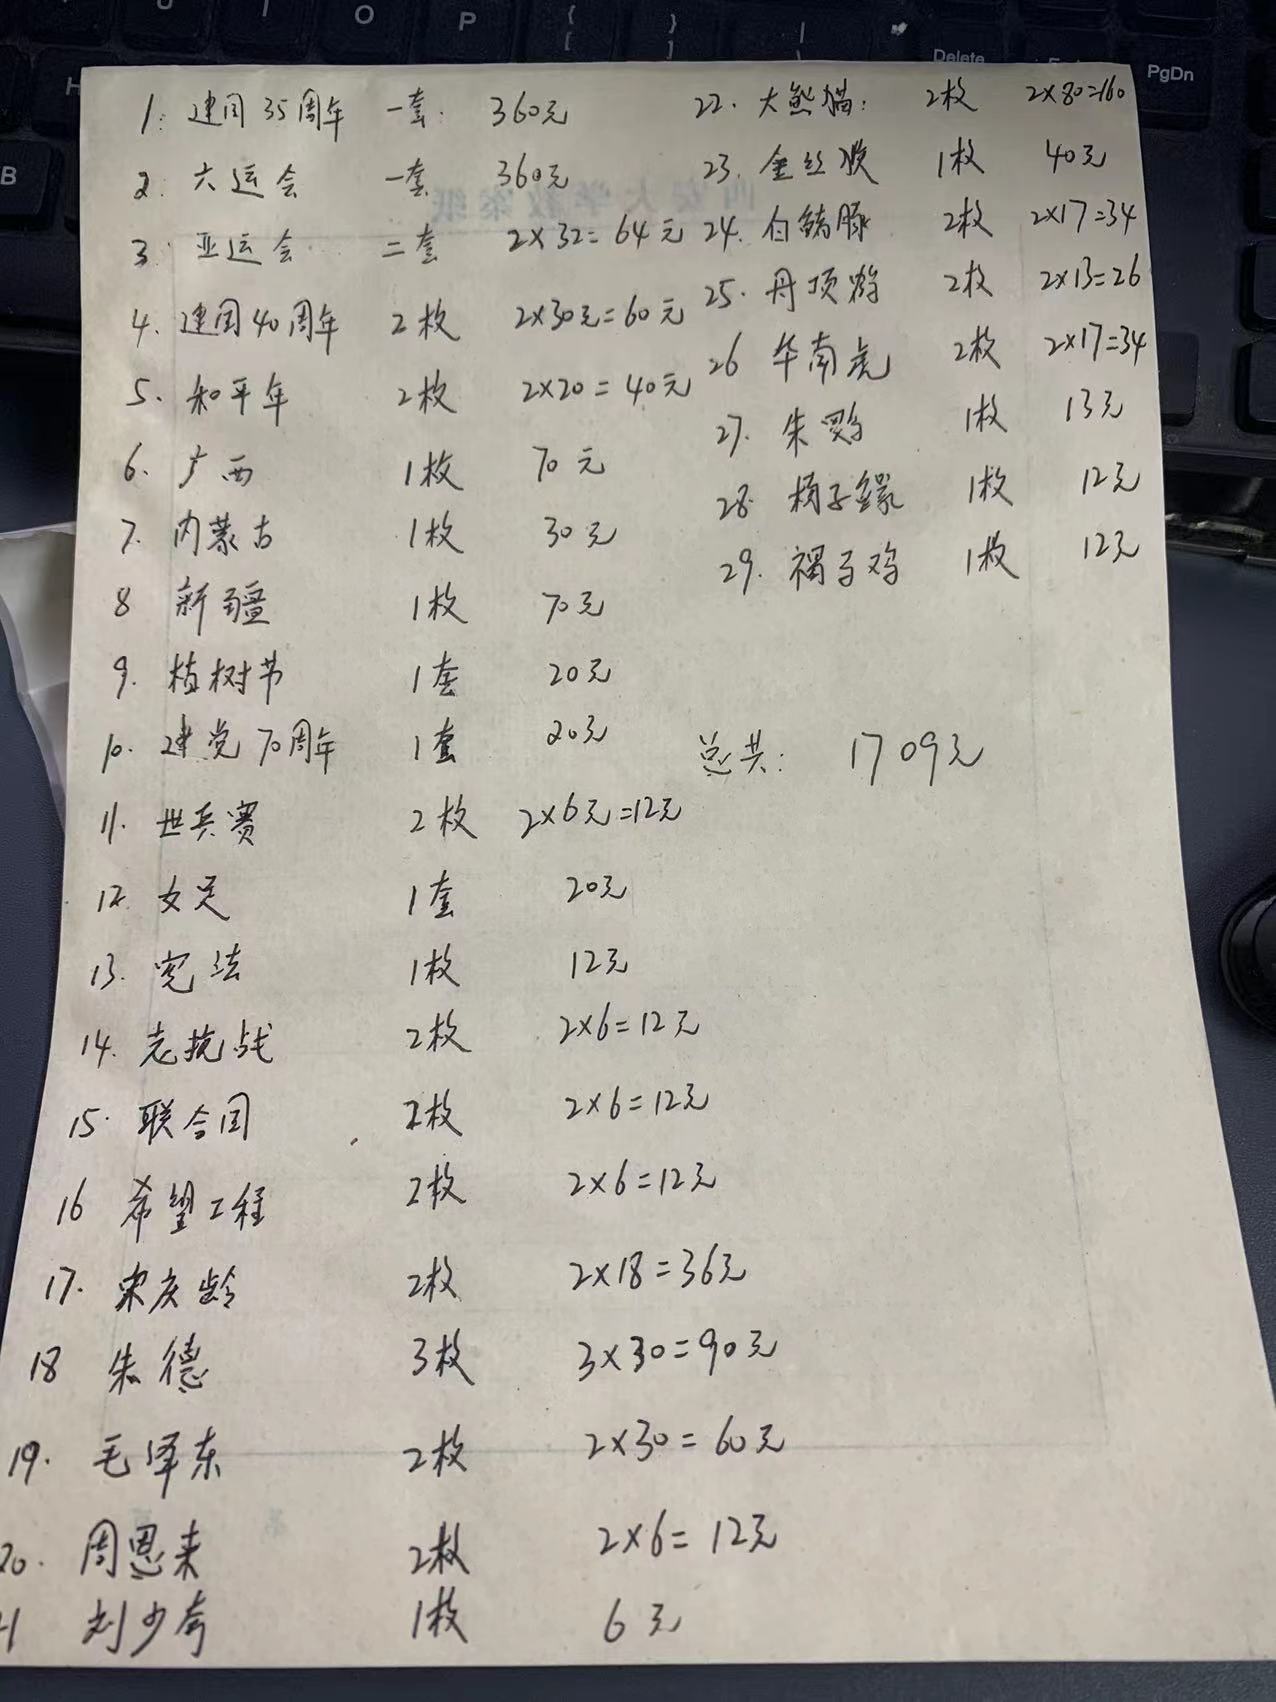 1. 建国35周年 一套 360元
2. 六运会 一套 360元
3. 亚运会 二套 2×32=64元
4. 建国40周年 2枚 2×30元=60元
5. 和平年 2枚 2×20=40元
6. 广西 1枚 70元
7. 内蒙古 1枚 30元
8 新疆 1枚 70元
9. 植树节 1套 20元
10. 建党70周年 1套 20元
11. 世乒赛 2枚 2×6元=12元
12 女足 1套 20元
13. 宪法 1枚 12元
14. 抗战 2枚 2×6=12元
15. 联合国 2枚 2×6=12元
16 希望工程 2枚 2×6=12元
17. 宋庆龄 2枚 2×18=36元
18 朱德 3枚 3×30=90元
19. 毛泽东 2枚 2×30=60元
20. 周恩来 2枚 2×6=12元
1 刘少奇 1枚 6元
22. 大熊猫: 2枚 2×80=160
23. 金丝猴 1枚 40元
24. 白鳍豚 2枚 2×17=34
25. 丹顶鹤 2枚 2×13=26
26 华南虎 2枚 2×17=34
27. 朱鹮 1枚 13元
28. 扬子鳄 1枚 12元
29. 褐马鸡 1枚 12元
总共: 1709元
西安大学教案纸
P
O
I
U
{
[
}
]
|
\
Delete
PgDn
H
B